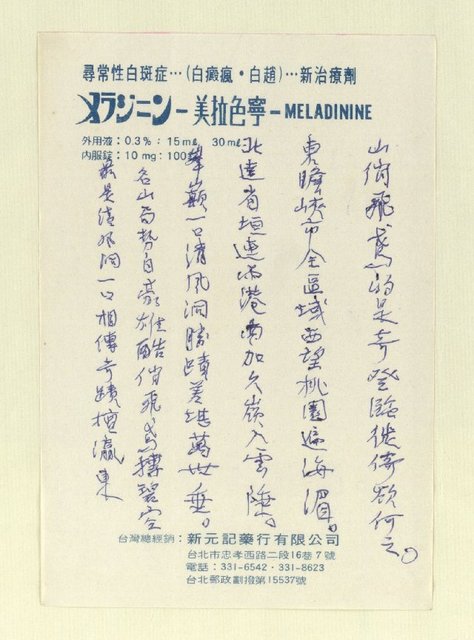 尋常性白斑症…(白癜瘋・白趙)…新治療劑
メラジニン-美拉色寧-MELADININE
外用液:0.3% : 15mℓ 30mℓ
内服錠:10mg:100錠
山俏飛鳶的是奇登臨徙倚欲何之。
東瞻峽市全區域西望桃園遍海湄。
北達省垣連港南加久嶺入雲陲。
峯巔一口清風洞勝蹟美堪萬世垂。
名山局勢自豪雄酷俏飛鳶摶碧空
最是清風洞一口相傳奇蹟擅瀛東
台灣總經銷:新元記藥行有限公司
台北市忠孝西路二段16巷7號
電話:331-6542・331-8623
台北郵政劃撥第15537號